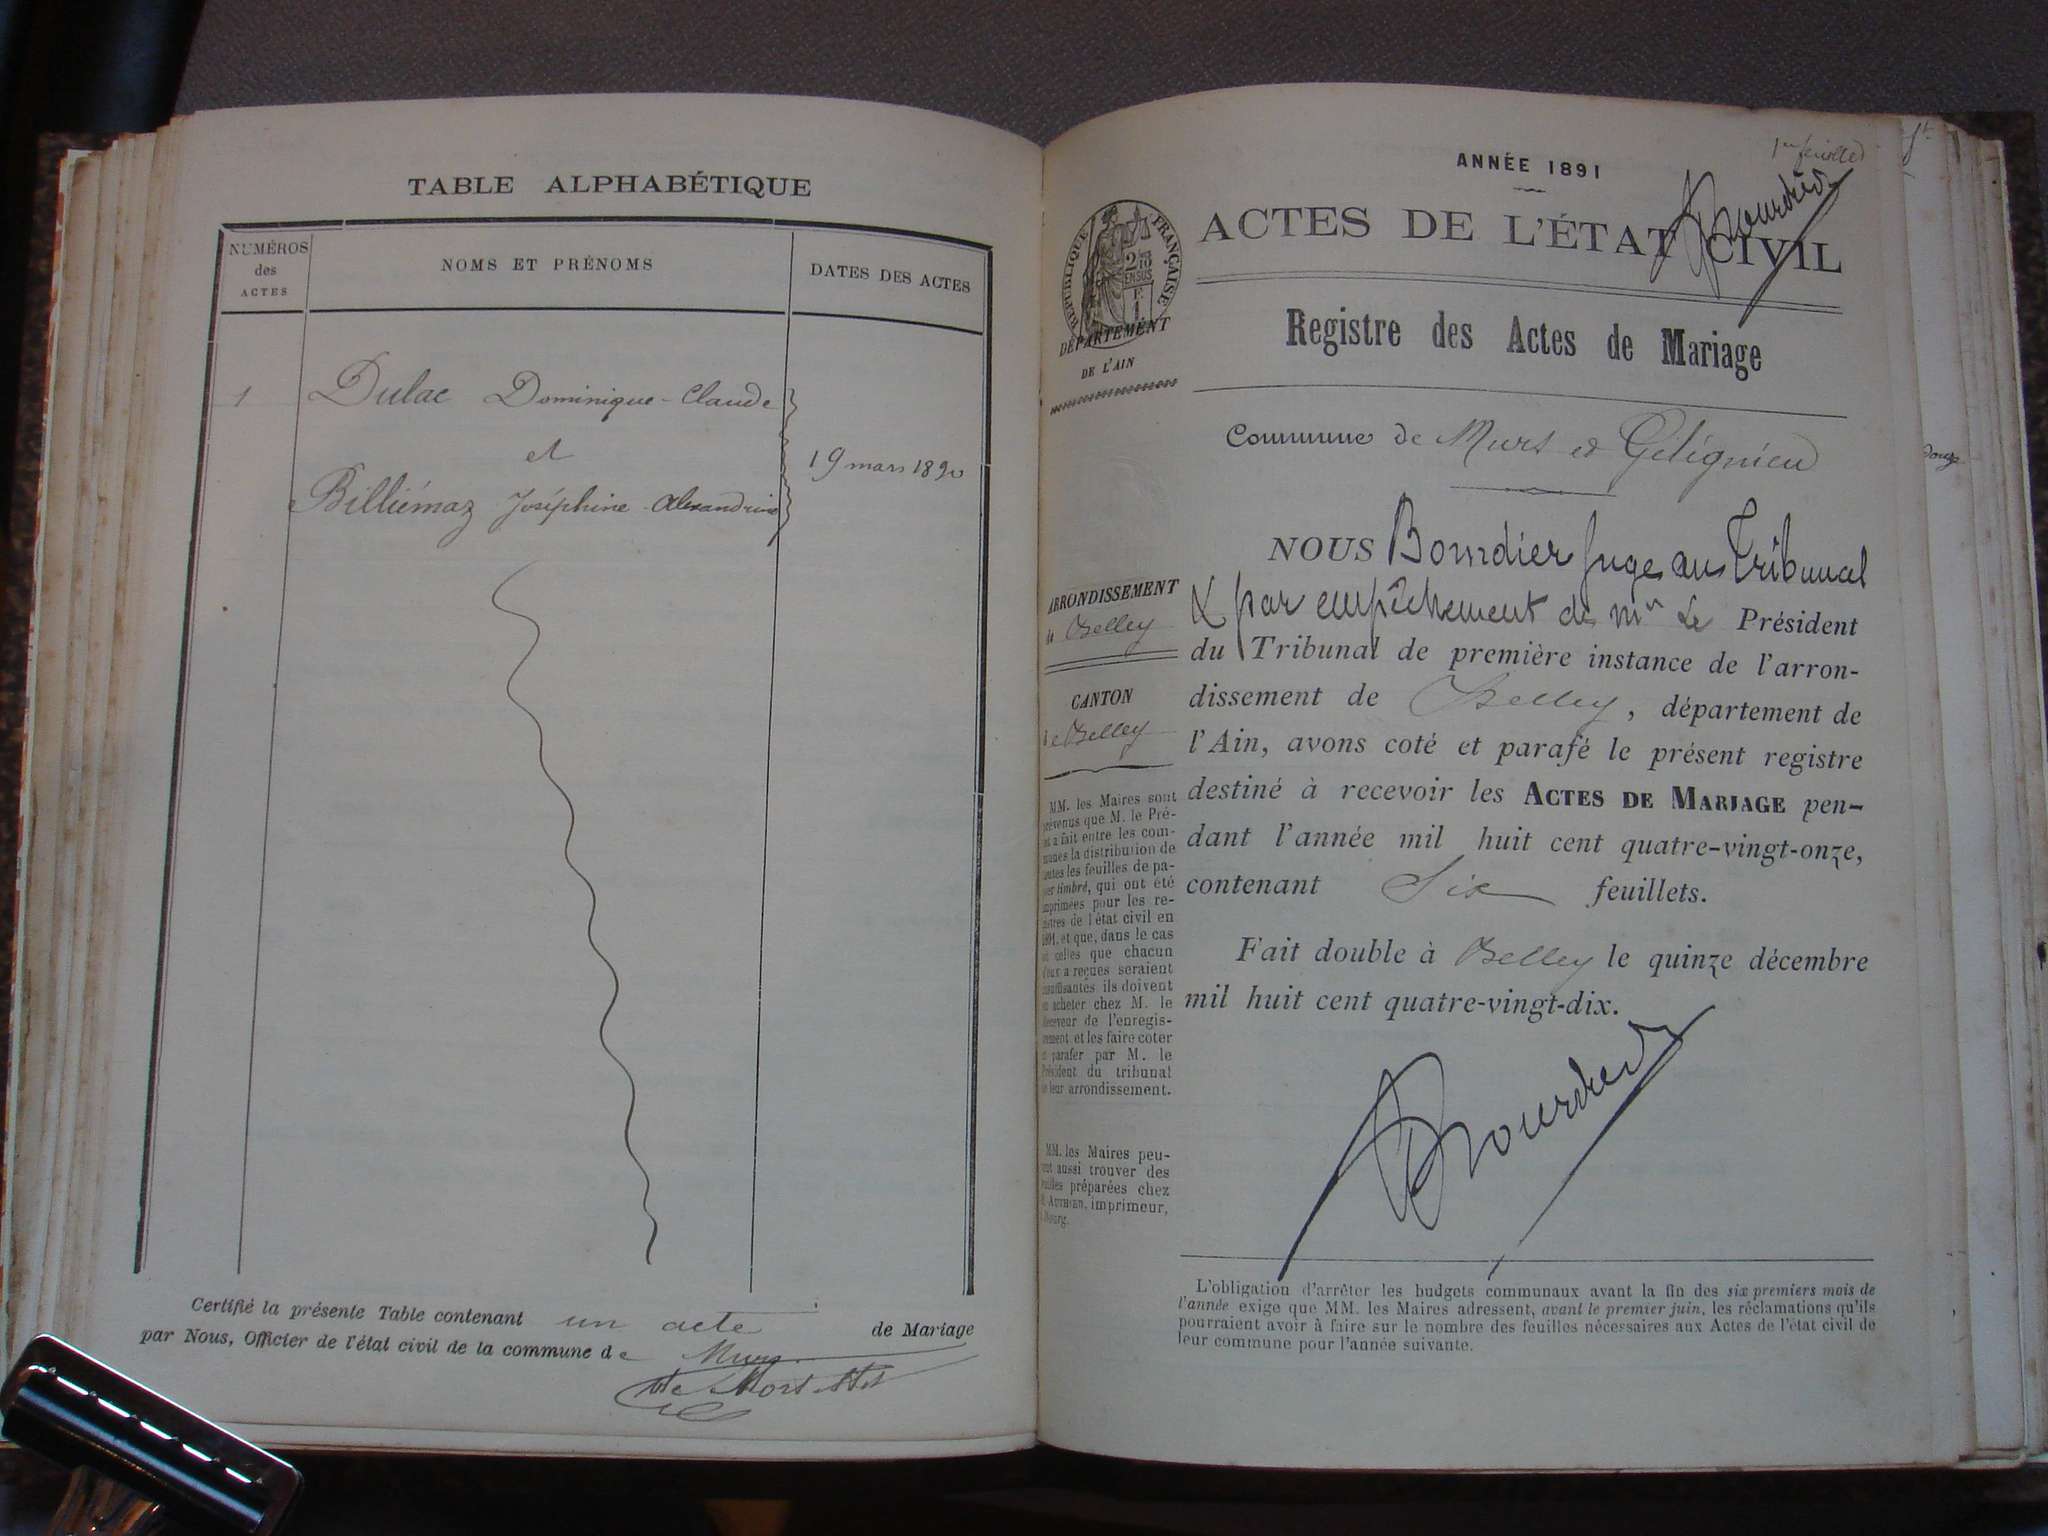 TABLE ALPHABÉTIQUE
NUMÉROS
des
ACTES
NOMS ET PRÉNOMS
DATES DES ACTES
1
Dulac Dominique-Claude
et
Billiémaz Joséphine Alexandrine
19 mars 1890
Certifié la présente Table contenant un acte de Mariage
par Nous, Officier de l'état civil de la commune de Murs
1er feuillet
ANNÉE 1891
Bourdier
ACTES DE L'ÉTAT CIVIL
RÉPUBLIQUE FRANÇAISE
2/10
EN SUS
DÉPARTEMENT
DE L'AIN
Registre des Actes de Mariage
Commune de Murs et Gélignieu
NOUS Bourdier Juge au Tribunal
& par empêchement de Mr Le Président
du Tribunal de première instance de l'arron-
dissement de Belley, département de
l'Ain, avons coté et parafé le présent registre
destiné à recevoir les ACTES DE MARIAGE pen-
dant l'année mil huit cent quatre-vingt-onze,
contenant Six feuillets.
Fait double à Belley le quinze décembre
mil huit cent quatre-vingt-dix.
Bourdier
ARRONDISSEMENT
de Belley
CANTON
de Belley
MM. les Maires sont
prévenus que M. le Pré-
fet a fait entre les com-
munes la distribution de
toutes les feuilles de pa-
pier timbré, qui ont été
imprimées pour les re-
gistres de l'état civil en
1891, et que, dans le cas
où celles que chacun
d'eux a reçues seraient
insuffisantes ils doivent
en acheter chez M. le
Receveur de l'enregis-
trement et les faire coter
et parafer par M. le
Président du tribunal
de leur arrondissement.
MM. les Maires peu-
vent aussi trouver des
feuilles préparées chez
M. AUTHIER, imprimeur,
à Bourg.
L'obligation d'arrêter les budgets communaux avant la fin des six premiers mois de
l'année exige que MM. les Maires adressent, avant le premier juin, les réclamations qu'ils
pourraient avoir à faire sur le nombre des feuilles nécessaires aux Actes de l'état civil de
leur commune pour l'année suivante.